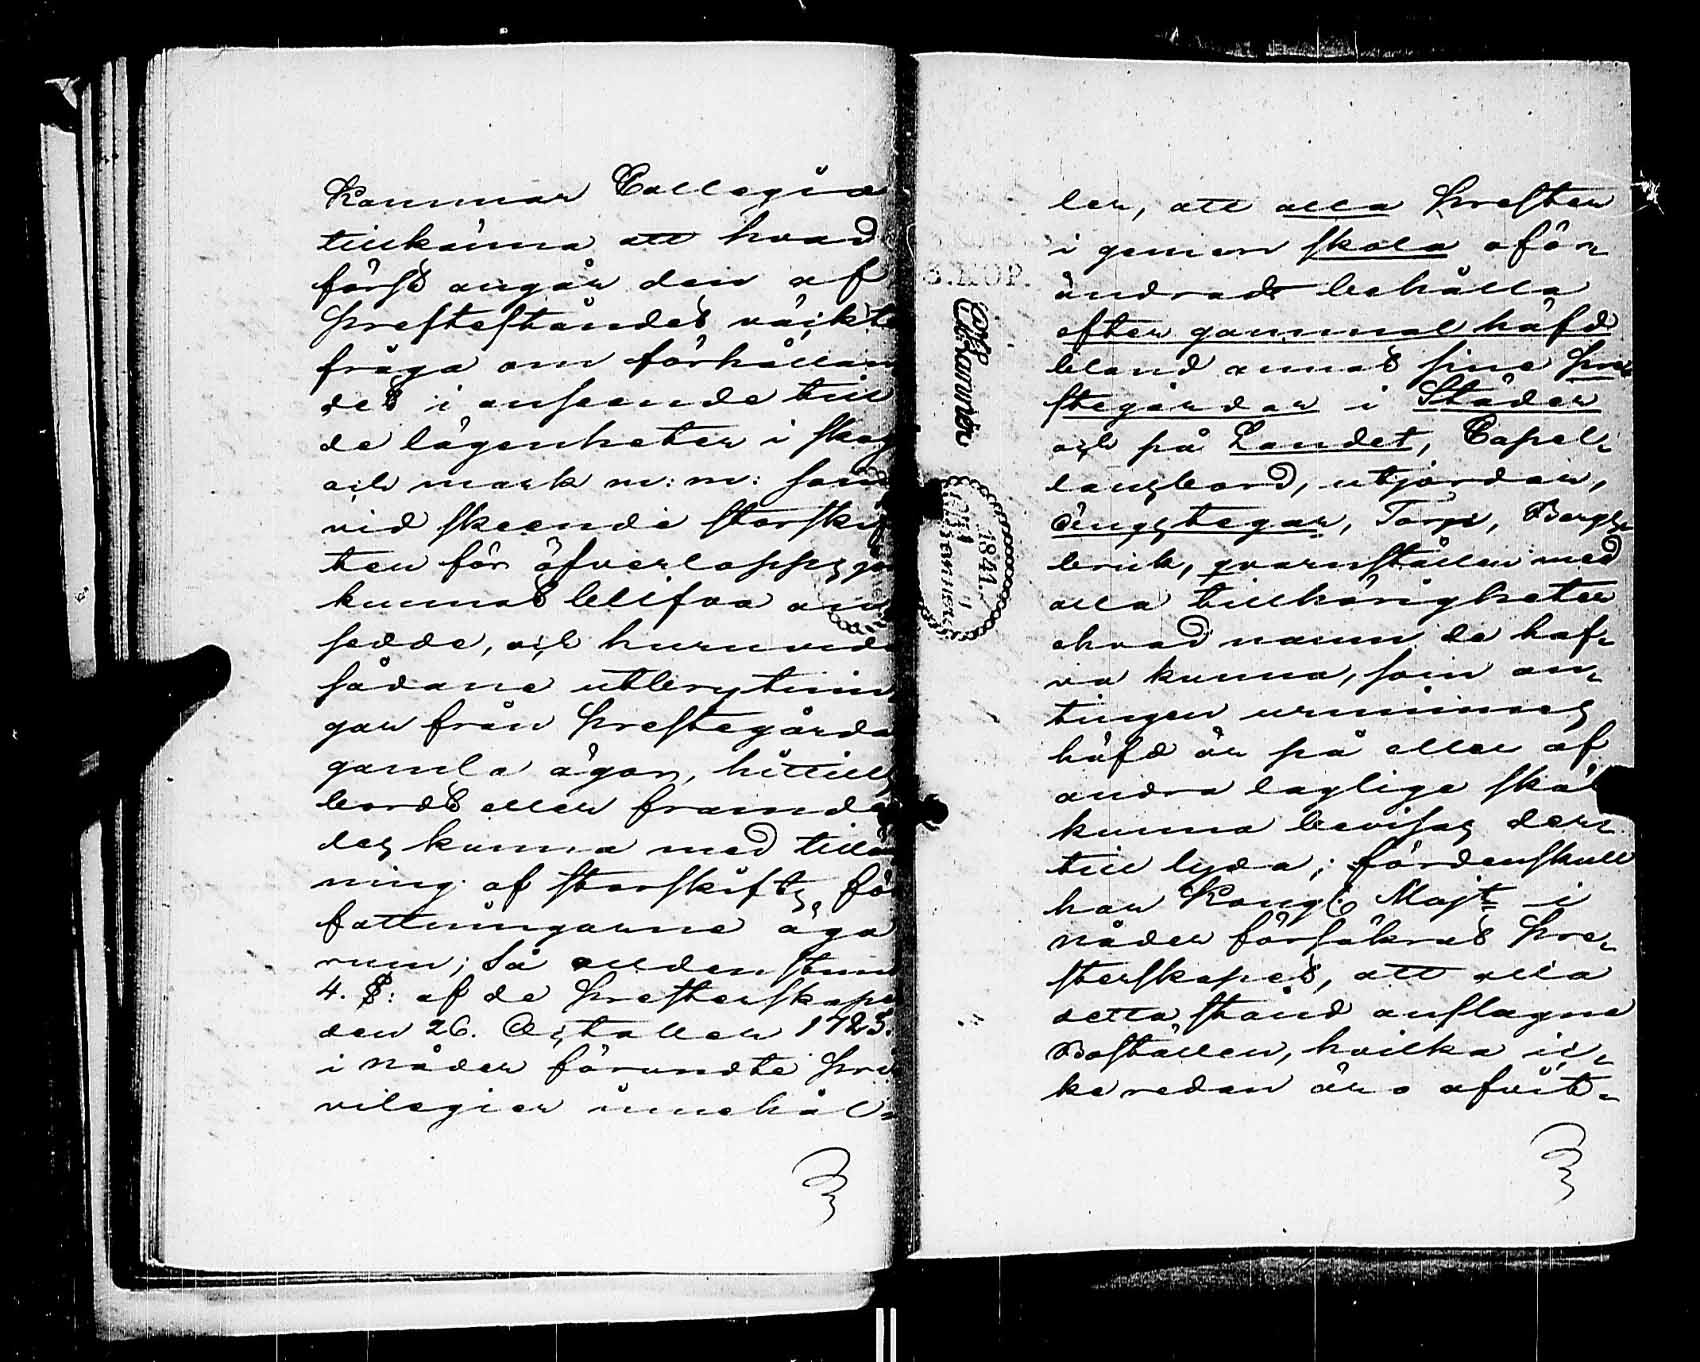 Kammar Collegiu
tillkänna att hvad
först angår den af
Presteståndet väckte
fråga om förhållan
det i anseende till
de lägenheter i skog
och mark m: m: som
vid skeende storskif
ten för öfverlopps
kunnat blifva an
sedde, och huruvida
sådane utbrytnin
gar från Prestegårda
gamla ägor, hittill
bords eller framde
les kunna med tillä
ning af storskifts för
fattningarne äga
rum; Så alldenstun
4. §: af de Presterskape
den 26. October 1723.
i nåder förundte Pri
vilegier innehål-
ler, att alla Prester
i gemen skola oför-
ändradt behålla
efter gammal häfd
bland annat sine Pre-
stegårdar i Städer
och på Landet, Capel-
lansbord, utjordar,
Ängstegar, Torp, Bergs-
bruk, qvarnställen med
alla tillhörigheter
ehvad namn de haf-
va kunna, som an-
tingen urminnes
häfd är på eller af
andra laglige skäl
kunna bevisas der-
till lyda; fördenskull
har Kongl. Majt i
nåder försäkrat Pre-
sterskapet, att alla
detta stånd anslagne
Boställen, hvilka ic-
ke redan äro afvit-
S. KOP.
1841.